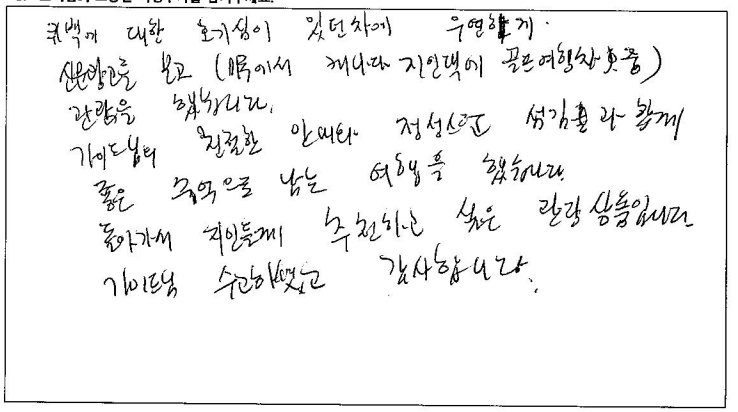 퀘백에 대한 호기심이 있던차에 우연하게
신문광고를 보고 (에서 캐나다 지인댁에 골프여행차 中)
관광을 했습니다.
가이드님의 친절한 안내와 정성스런 섬김과 함께
좋은 추억으로 남는 여행을 했습니다.
돌아가서 지인들께 추천하고 싶은 관광상품입니다.
가이드님 수고하셨고 감사합니다.